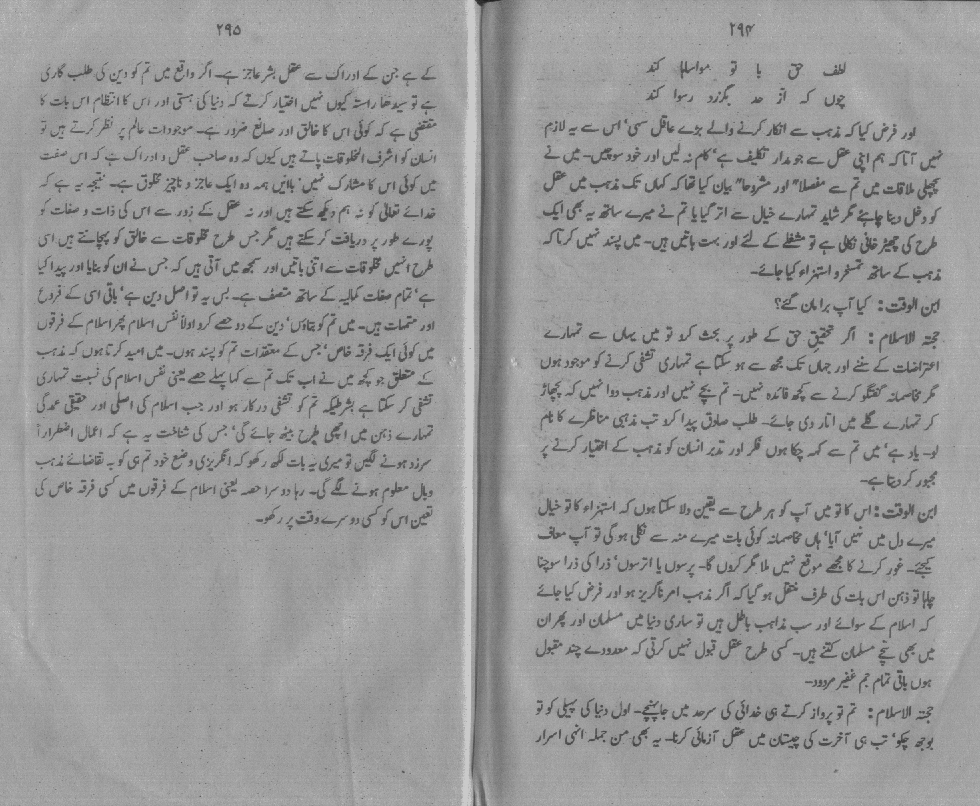 ۲۹۴
لطف حق با تو مواساہا کند
چوں کہ از حد بگزرد رسوا کند
اور فرض کیا کہ مذہب سے انکار کرنے والے بڑے عاقل سہی‘ اس سے یہ لازم
نہیں آتا کہ ہم اپنی عقل سے جو مدار تکلیف ہے‘ کام نہ لیں اور خود سوچیں۔ میں نے
پچھلی ملاقات میں تم سے مفصلا" اور مشروحا" بیان کیا تھا کہ کہاں تک مذہب میں عقل
کو دخل دینا چاہئے مگر شاید تمہارے خیال سے اتر گیا یا تم نے میرے ساتھ یہ بھی ایک
طرح کی چھیڑ خانی نکالی ہے تو مشغلے کے لئے اور بہت باتیں ہیں۔ میں پسند نہیں کرتا کہ
مذہب کے ساتھ تمسخر و استہزاء کیا جائے۔
ابن الوقت: کیا آپ برا مان گئے؟
حجتہ الاسلام: اگر تحقیق حق کے طور پر بحث کرو تو میں یہاں سے تمہارے
اعتراضات کے سننے اور جہاں تک مجھ سے ہو سکتا ہے تمہاری تشفی کرنے کو موجود ہوں
مگر مخاصمانہ گفتگو کرنے سے کچھ فائدہ نہیں۔ تم بچے نہیں اور مذہب دوا نہیں کہ پچھاڑ
کر تمہارے گلے میں اتار دی جائے۔ طلب صادق پیدا کرو تب مذہبی مناظرے کا نام
لو۔ یاد ہے‘ میں تم سے کہہ چکا ہوں فکر اور تدبر انسان کو مذہب کے اختیار کرنے پر
مجبور کر دیتا ہے۔
ابن الوقت: اس کا تو میں آپ کو ہر طرح سے یقین دلا سکتا ہوں کہ استہزاء کا تو خیال
میرے دل میں نہیں آیا‘ ہاں مخاصمانہ کوئی بات میرے منہ سے نکلی ہو گی تو آپ معاف
کیجئے۔ غور کرنے کا مجھے موقع نہیں ملا مگر کروں گا۔ پرسوں یا اترسوں‘ ذرا کی ذرا سوچنا
چاہا تو ذہن اس بات کی طرف منتقل ہو گیا کہ اگر مذہب امر ناگریز ہو اور فرض کیا جائے
کہ اسلام کے سوائے اور سب مذاہب باطل ہیں تو ساری دنیا میں مسلمان اور پھر ان
میں بھی سچے مسلمان کتنے ہیں۔ کسی طرح عقل قبول نہیں کرتی کہ معدودے چند مقبول
ہوں باقی تمام جم غفیر مردود۔
حجتہ الاسلام: تم تو پرواز کرتے ہی خدائی کی سرحد میں جا پہنچے۔ اول دنیا کی پہیلی کو تو
بوجھ چکو‘ تب ہی آخرت کی چیستان میں عقل آزمائی کرنا۔ یہ بھی من جملہ انہی اسرار
۲۹۵
کے ہے جن کے ادراک سے عقل بشر عاجز ہے۔ اگر واقع میں تم کو دین کی طلب گاری
ہے تو سیدھا راستہ کیوں نہیں اختیار کرتے کہ دنیا کی ہستی اور اس کا انتظام اس بات کا
مقتضی ہے کہ کوئی اس کا خالق اور صانع ضرور ہے۔ موجودات عالم پر نظر کرتے ہیں تو
انسان کو اشرف المخلوقات پاتے ہیں کیوں کہ وہ صاحب عقل و ادراک ہے کہ اس صفت
میں کوئی اس کا مشارک نہیں‘ بایں ہمہ وہ ایک عاجز و ناچیز مخلوق ہے۔ نتیجہ یہ ہے کہ
خدائے تعالیٰ کو نہ ہم دیکھ سکتے ہیں اور نہ عقل کے زور سے اس کی ذات و صفات کو
پورے طور پر دریافت کر سکتے ہیں مگر جس طرح مخلوقات سے خالق کو پہچانتے ہیں اسی
طرح انہیں مخلوقات سے اتنی باتیں اور سمجھ میں آتی ہیں کہ جس نے ان کو بنایا اور پیدا کیا
ہے‘ تمام صفات کمالیہ کے ساتھ متصف ہے۔ بس یہ تو اصل دین ہے‘ باقی اسی کے فروع
اور متممات ہیں۔ میں تم کو بتاؤں‘ دین کے دو حصے کرو اولا" نفس اسلام پھر اسلام کے فرقوں
میں کوئی ایک فرقہ خاص‘ جس کے معتقدات تم کو پسند ہوں۔ میں امید کرتا ہوں کہ مذہب
کے متعلق جو کچھ میں نے اب تک تم سے کہا پہلے حصے یعنی نفس اسلام کی نسبت تمہاری
تشفی کر سکتا ہے بشرطیکہ تم کو تشفی درکار ہو اور جب اسلام کی اصلی اور حقیقی عمدگی
تمہارے ذہن میں اچھی طرح بیٹھ جائے گی‘ جس کی شناخت یہ ہے کہ اعمال اضطراراً
سرزد ہونے لگیں تو میری یہ بات لکھ رکھو کہ انگریزی وضع خود تم ہی کو بہ تقاضائے مذہب
وبال معلوم ہونے لگے گی۔ رہا دوسرا حصہ یعنی اسلام کے فرقوں میں کسی فرقہ خاص کی
تعین اس کو کسی دوسرے وقت پر رکھو۔